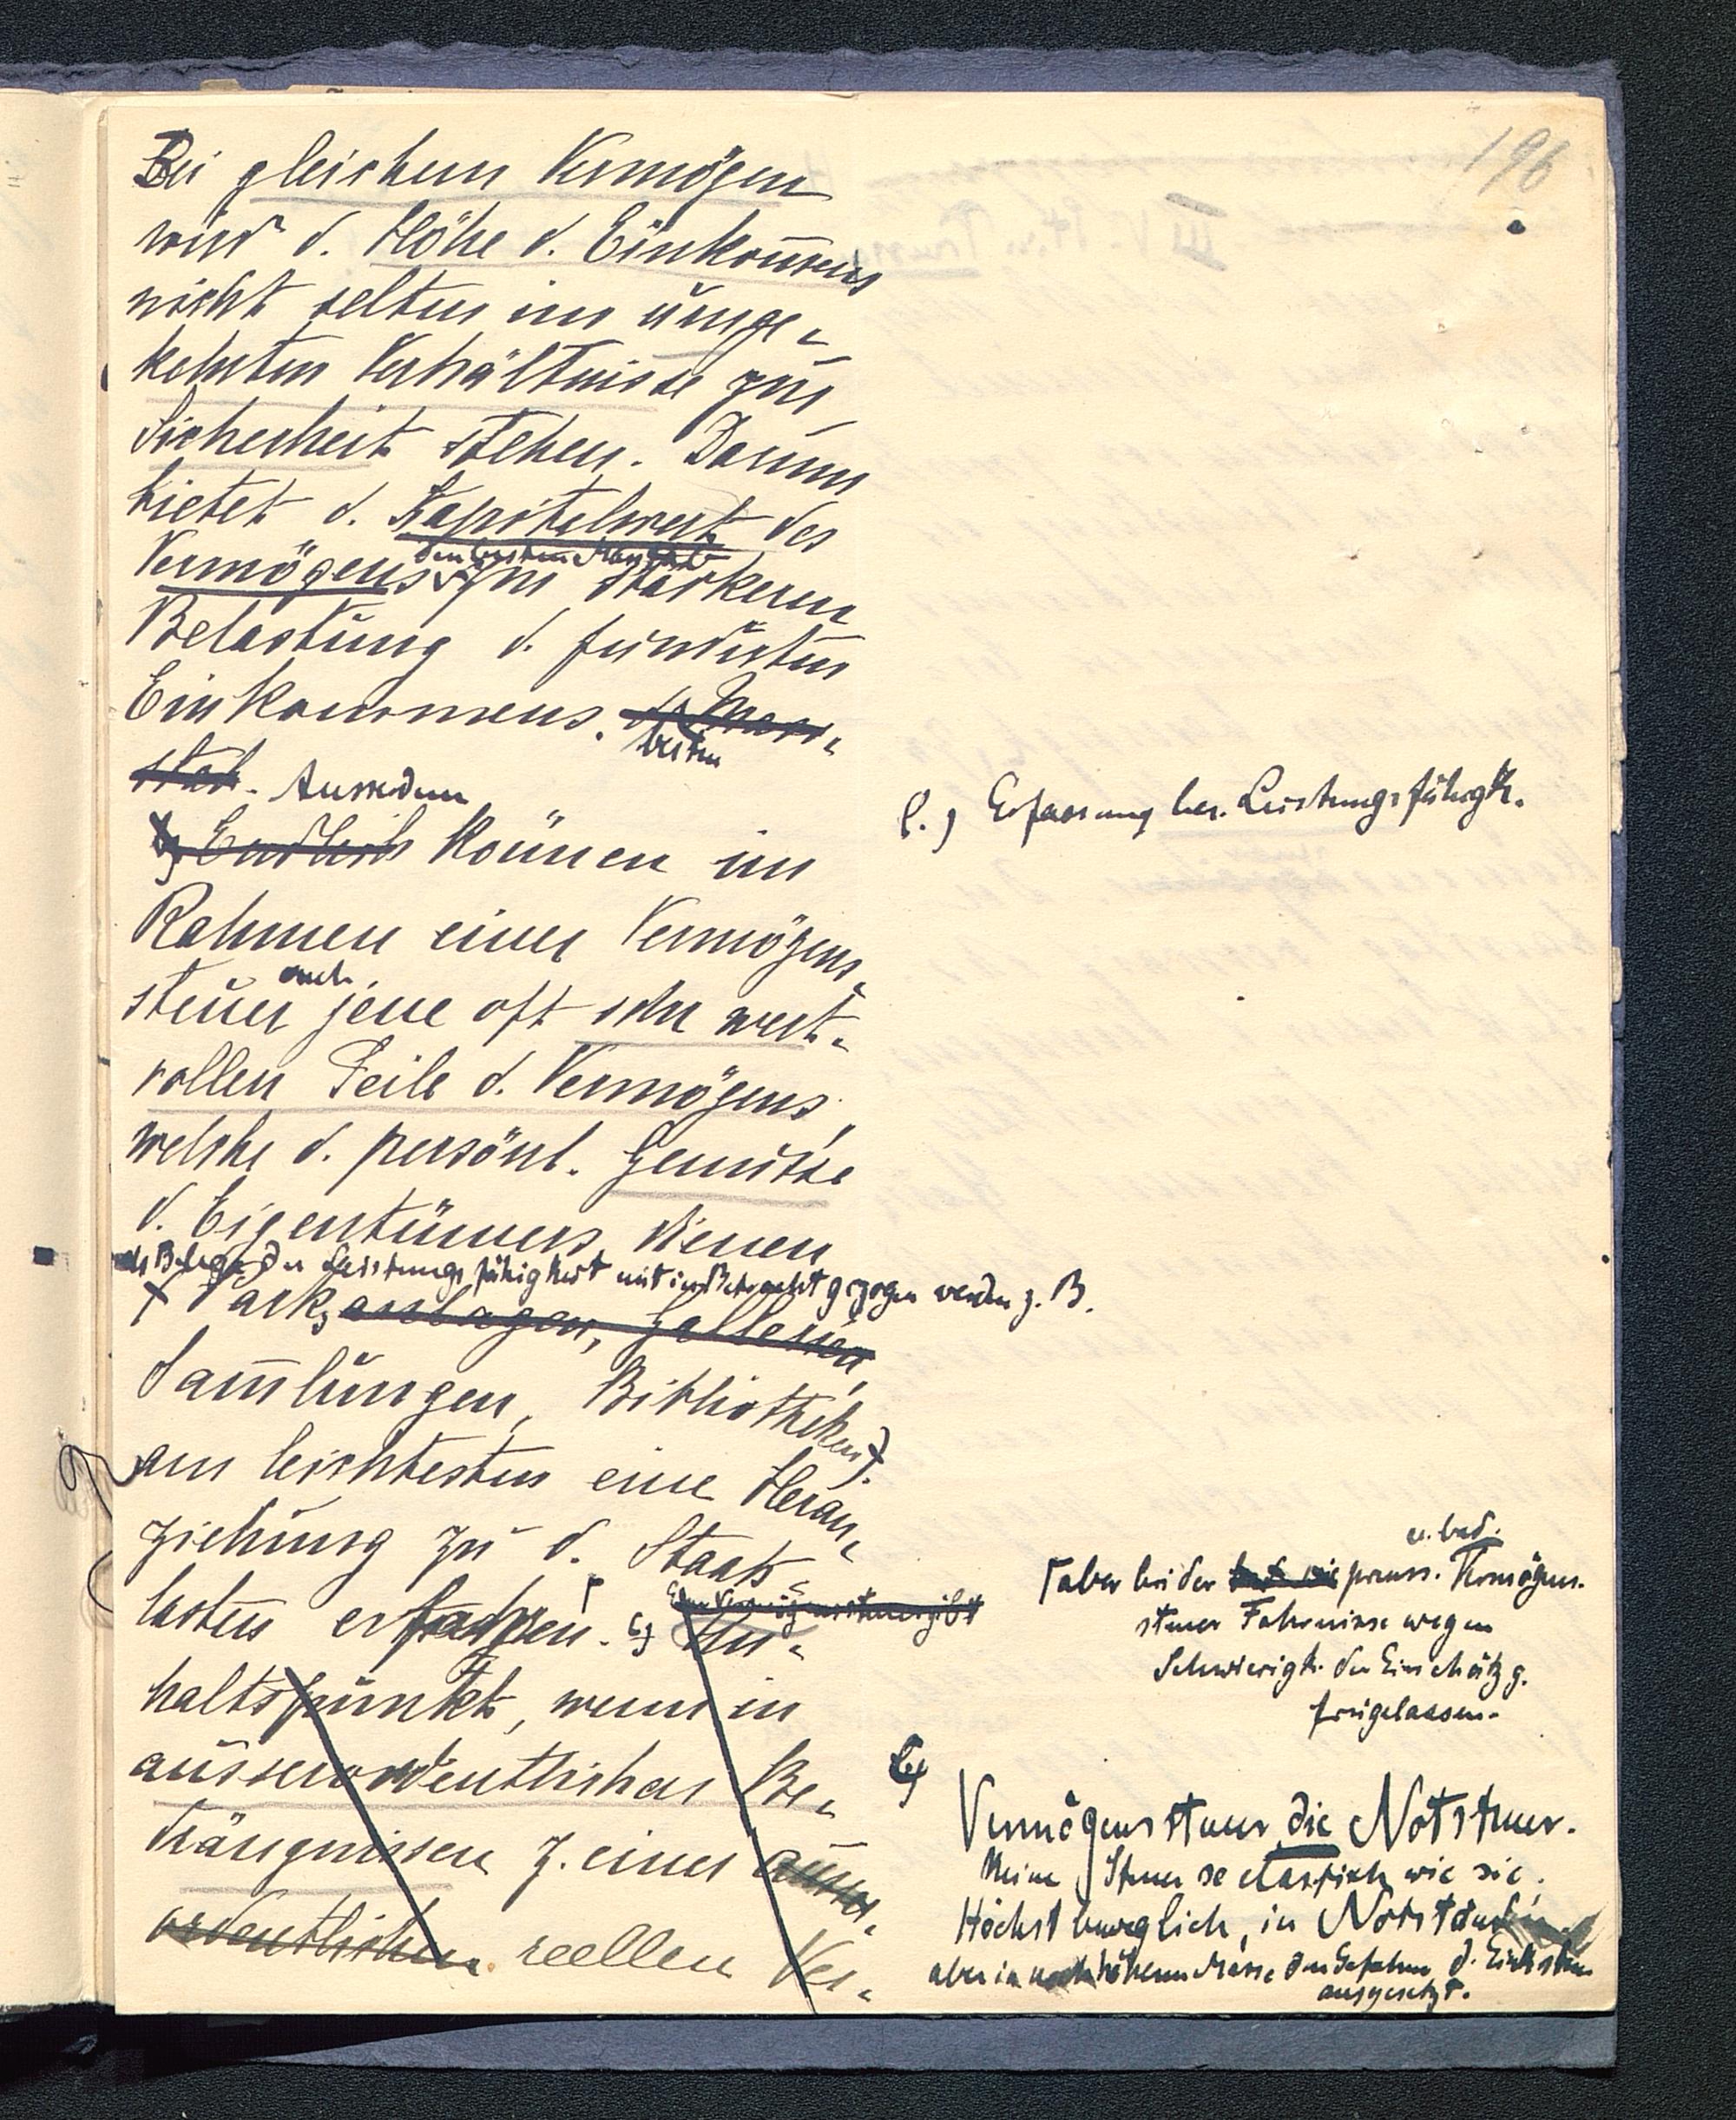 196
Bei gleichem Vermögen
wird d. Höhe d. Einkom̅ens
nicht selten im umge-
kehrten Verhältnisse zur
Sicherheit stehen. Darum
bietet d. Kapitalwert des
den besten Masstab
Vermögens zur stärkeren
Belastung d. fundierten
Einkommens. Mass-
besten
stab. Ausserdem
Endlich können im
Rahmen einer Vermögens-
auch
steuer jene oft sehr wert-
vollen Teile d. Vermögens,
welche d. persönl. Genusse
d. Eigentümers dienen
als Belege der Leistungsfähigkeit mit in Betracht gezogen werden z. B.
Parks anlagen, Gallerien,
Sam̅lungen, Bibliotheken).
am leichtesten eine Heran-
ziehung zu d. Staats-
lasten erfahren.
Eine Vermögenssteuer gibt
c) An-
haltspunkt, wenn in
ausserordentlicher Be-
drängnissen z. einer ausser-
ordentlichen reellen Ver-
b.) Erfassung bes. Leistungsfähigk.
u. bad.
aber bei der preuss. Vermögens-
steuer Fahrnisse wegen
Schwierigk. der Einschätzg.
freigelassen.
c)
Vermögenssteuer die Notsteuer.
Keine Steuer so elastisch wie sie.
Höchst beweglich, in Notständen
aber in noch höherem Masse den Gefahren d. Einksteu
ausgesetzt.